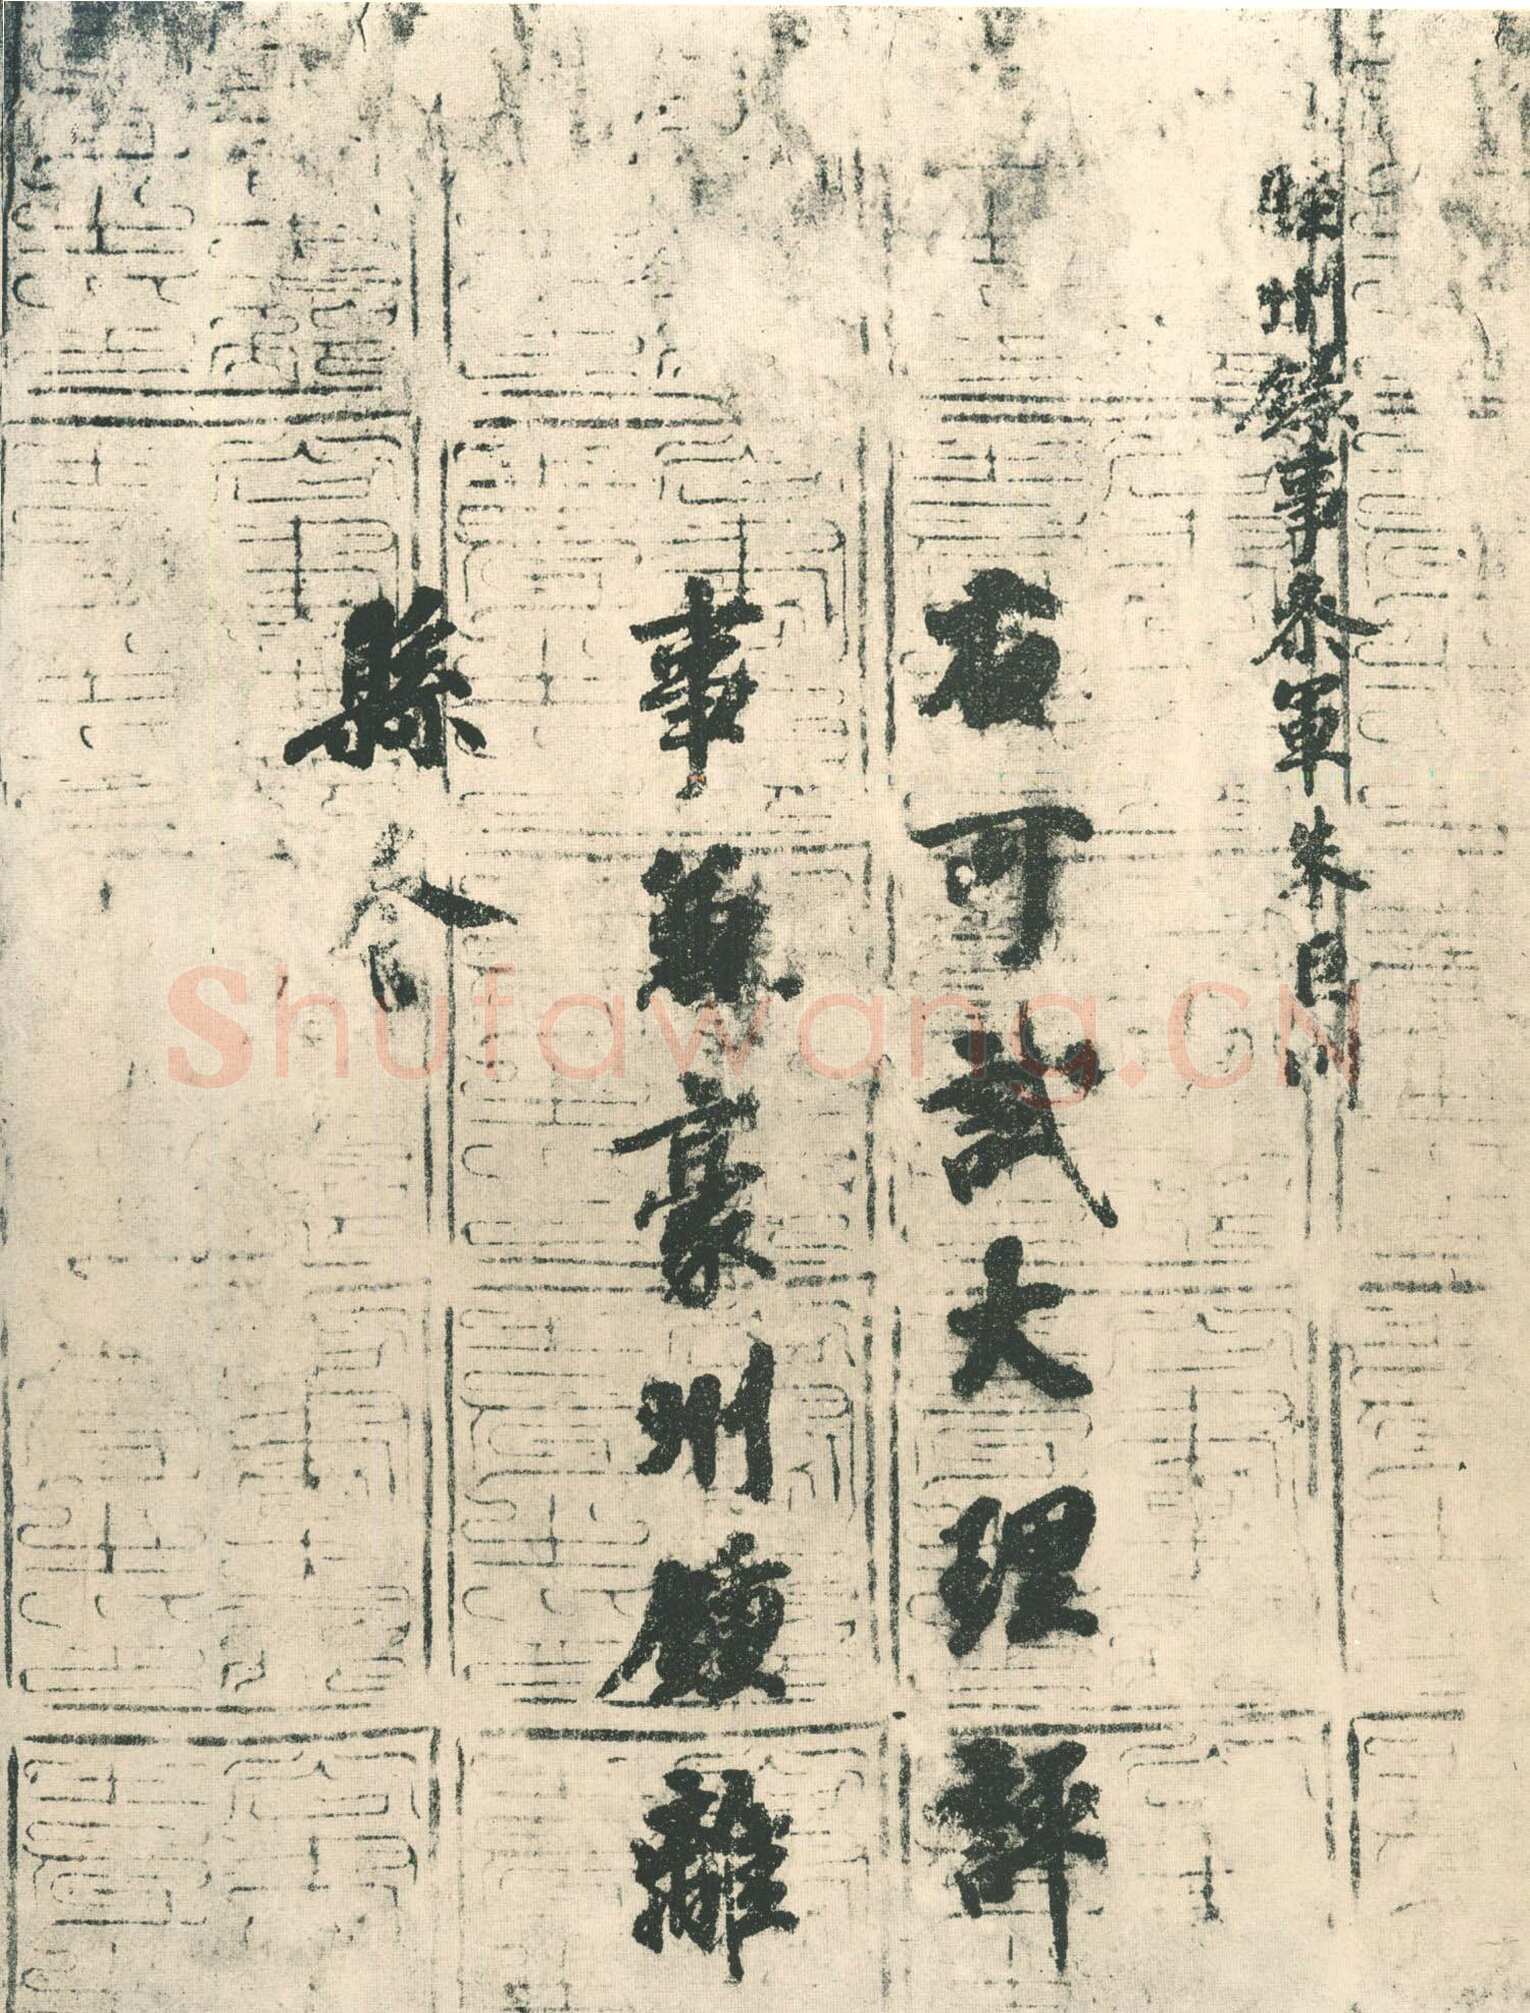 睦州錄事參軍朱巨川
右可試大理評
事兼豪州鍾離
縣令
Shufawang.CN